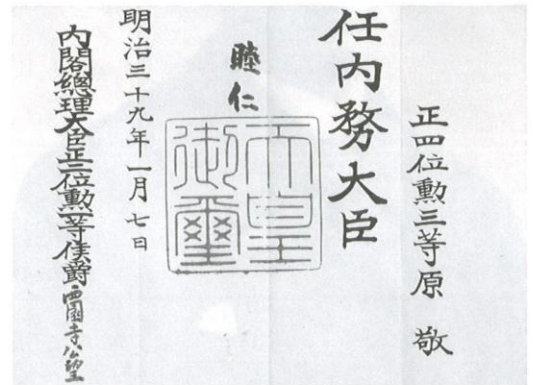 正四位勲三等原 敬
任内務大臣
睦仁
天皇御璽
明治三十九年一月七日
内閣總理大臣正二位勲一等侯爵西園寺公望